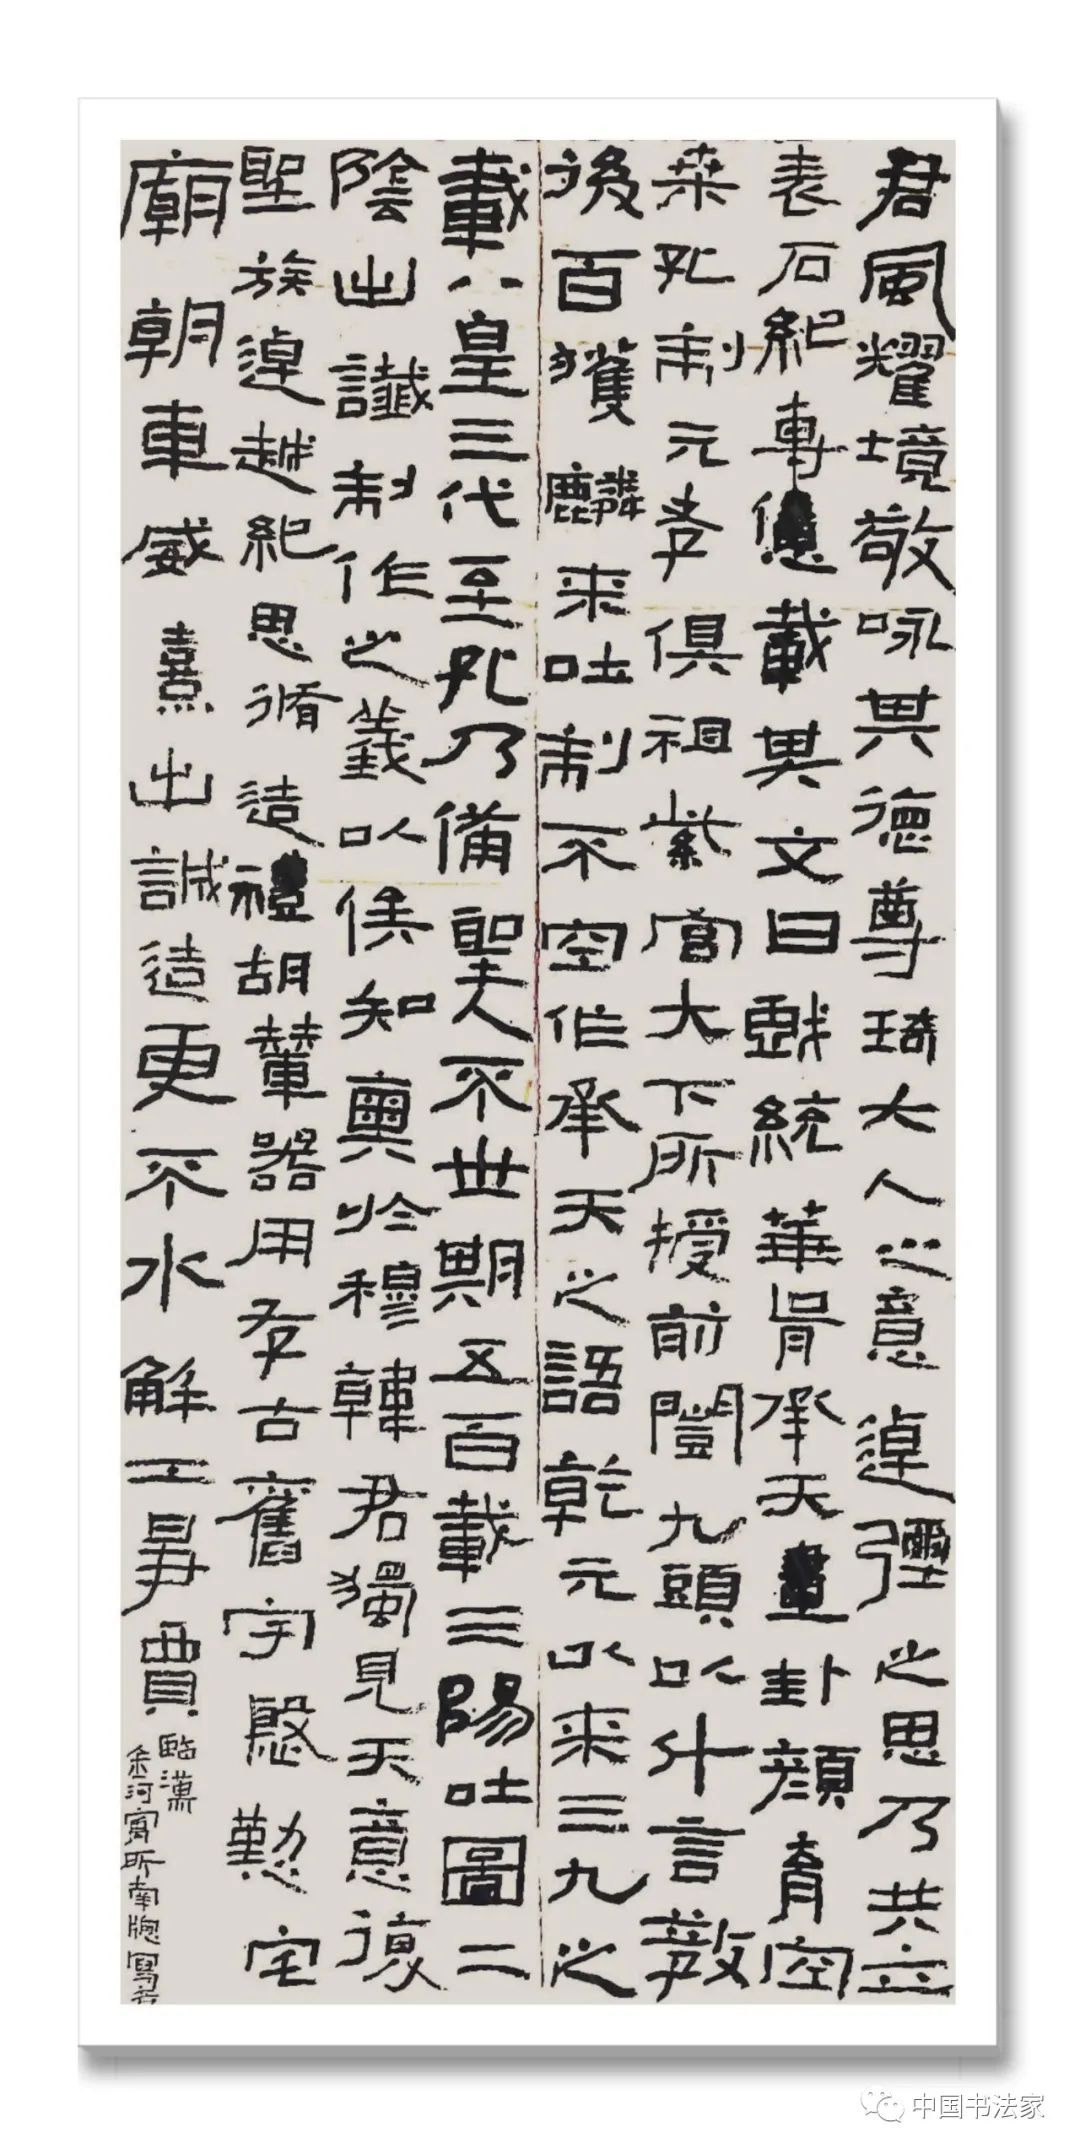 君風耀境敬咏其德尊琦大人之意逴彌之思乃共立
表石紀專億載其文曰戲統華胥承天畫卦顏育空
桒孔制元孝俱祖紫宮大下所授前闓九頭以什言教
後百獲麟来吐制不空作承天之語乾元以来三九之
載八皇三代至孔乃備聖人不世期五百載三陽吐圖二
陰出讖制作之義以俟知奧於穆韓君獨見天意復
聖族逴越紀思脩造禮胡輦器用存古舊宇慇懃宅
廟朝車威熹出誠造更不水解工昇賈
臨漢
河寓所南窗寫
中国书法家